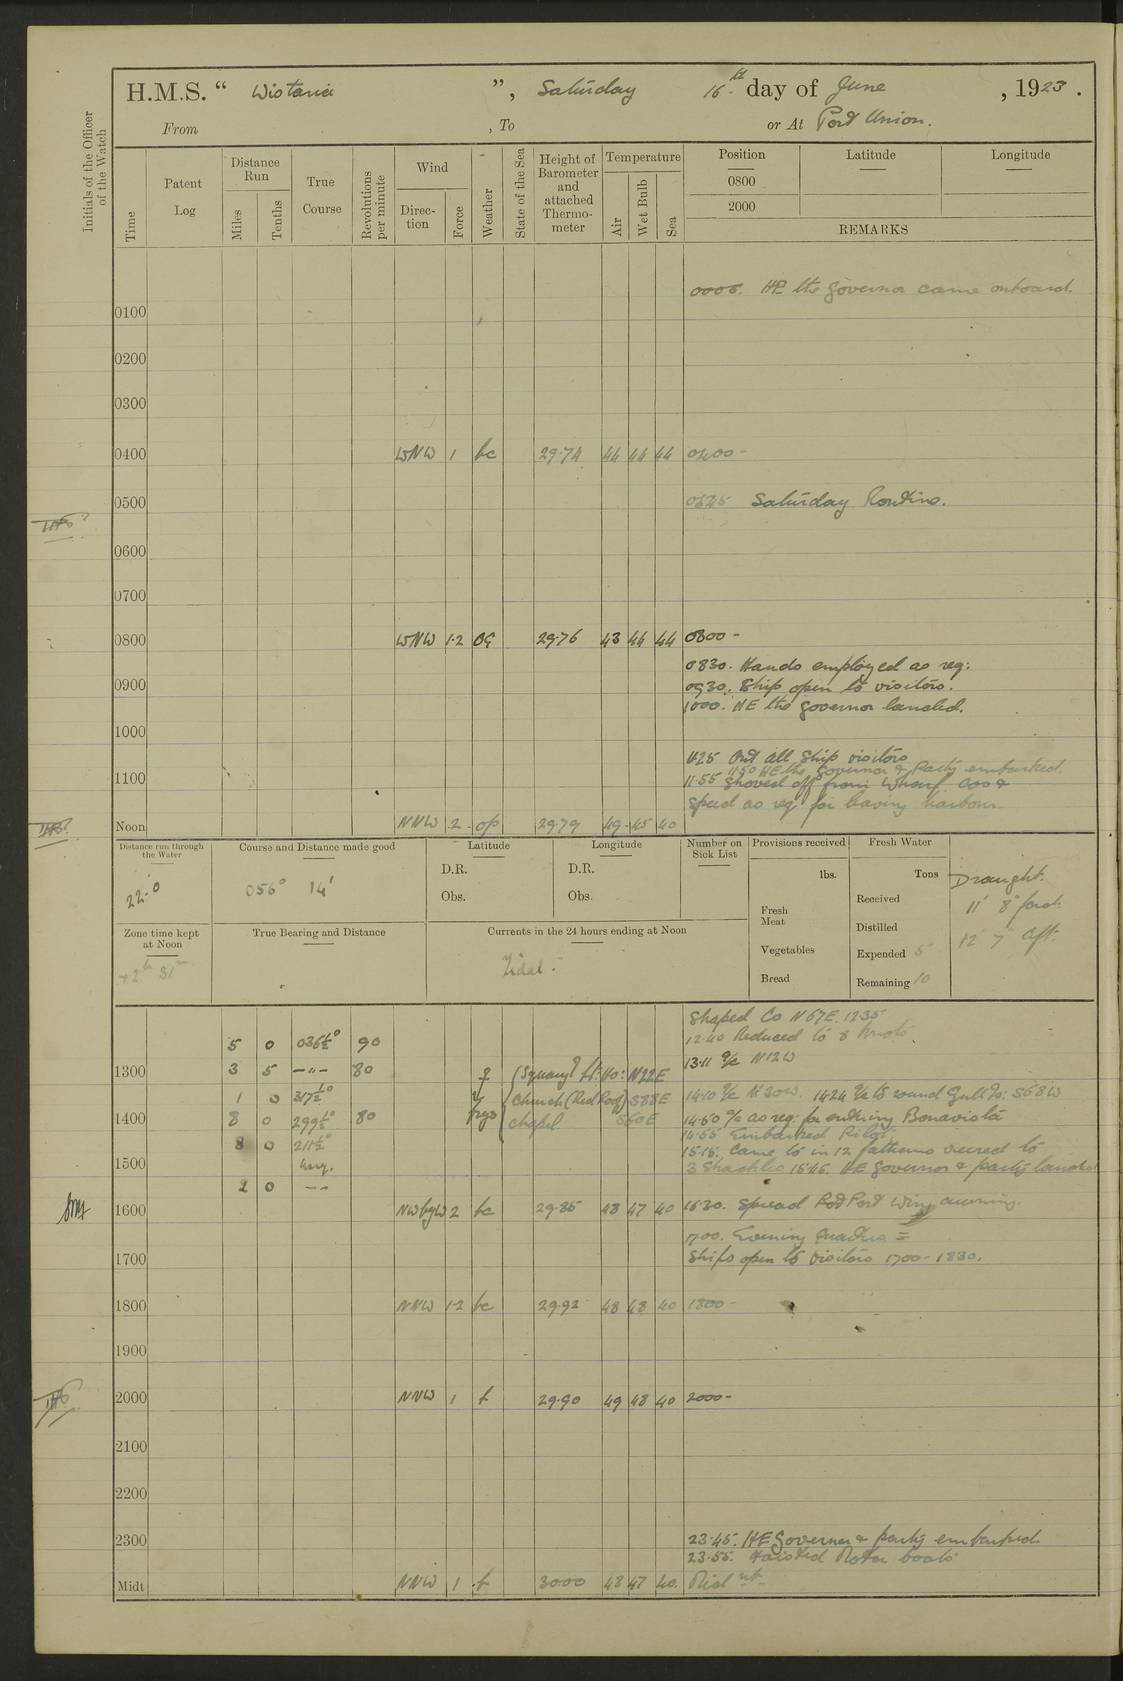 H.M.S. “ Wistaria ”, Saturday 16th day of June, 1923.
From , To or At Port Union.
Initials of the Officer of the Watch
Time
Patent Log
Distance Run
Miles
Tenths
True Course
Revolutions per minute
Wind
Direction
Force
Weather
State of the Sea
Height of Barometer and attached Thermometer
Temperature
Air
Wet Bulb
Sea
Position Latitude Longitude
0800
2000
REMARKS
HE the Governor came onboard.
0100
0200
0300
0400 WNW 1 bc 29.74 44 44 44 0400 -
0500 0645 Saturday Routine.
0600
0700
0800 WNW 1.2 29.76 43 44 44 0800 -
0830. Hands employed as req:
0900 0930. Ship open to visitors.
1000. HE the Governor landed.
1000
1125 Out all Ship visitors
1150 HE the Governor & Party embarked.
1100 11.55 Shoved off from Wharf. Cos &
speed as req for leaving harbour
Noon NNW 2 op 29.79 49 45 40
Distance run through the Water
22.0
Course and Distance made good
056° 14'
Latitude
D.R.
Obs.
Longitude
D.R.
Obs.
Number on Sick List
Provisions received
lbs.
Fresh Meat
Vegetables
Bread
Fresh Water
Tons
Received
Distilled
Expended 5
Remaining 10
Draught.
11' 8" ford.
12' 7" Aft.
Zone time kept at Noon
+2h 31m
True Bearing and Distance
Currents in the 24 hours ending at Noon
Tidal.
Shaped Co N67E. 1235
5 0 036½° 90 12.40 Reduced to 8 knots.
1300 3 5 —"— 80 Lt: Ho: N22E 13.11 a/c N12W
1 0 317½° Church (Red Roof) S88E 14.10 a/c N30W. 1424 a/c to round Gull Is: S68W
1400 8 0 299½° 80 chapel S60E 14.50 a/c as req: for entering Bonavista
8 0 211½° 14.55 Embarked Pilot.
15.15. Came to in 12 fathoms veered to
1500 3 Shackles 15.45. HE Governor & party landed
2 0 --
1600 NW by W 2 bc 29.85 48 47 40 16.30. Spread Port wing awning.
1700. Evening Quarters =
1700 Ships open to visitors 1700 - 1830.
1800 NNW 1.2 bc 29.92 48 43 40 1800 -
1900
2000 NNW 1 29.90 49 48 40 2000 -
2100
2200
2300 23.45. HE Governor & party embarked.
23.55. Hoisted Motor boats
Midt NNW 1 3000 48 47 40.